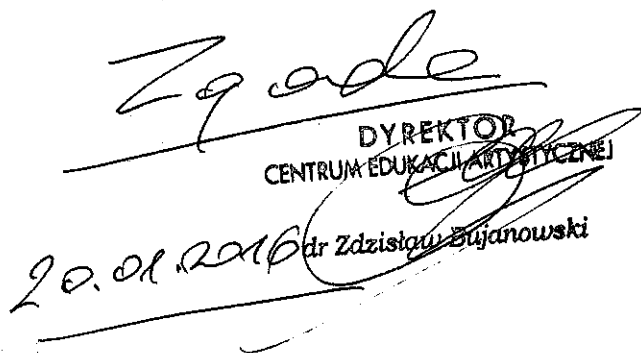 Zgoda
DYREKTOR
CENTRUM EDUKACJI ARTYSTYCZNEJ
20.01.2016 dr Zdzisław Bujanowski